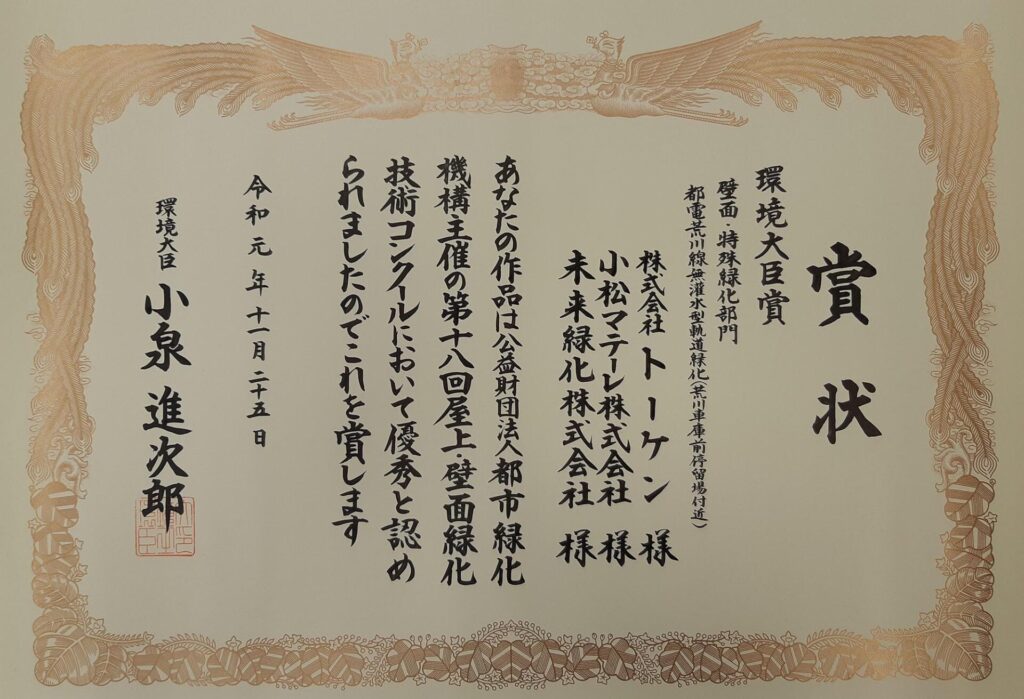 賞状
環境大臣賞
壁面・特殊緑化部門
都電荒川線無灌水型軌道緑化(荒川車庫前停留場付近)
株式会社トーケン 様
小松マテーレ株式会社 様
未来緑化株式会社 様
あなたの作品は公益財団法人都市緑化
機構主催の第十八回屋上・壁面緑化
技術コンクールにおいて優秀と認め
られましたのでこれを賞します
令和元年十一月二十五日
環境大臣 小泉 進次郎